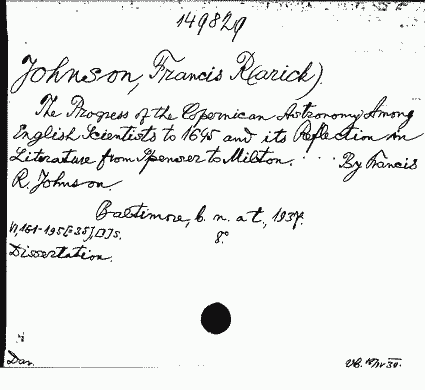 149829
Johnson, Francis R(arick)
The Progress of the Copernican Astronomy Among
English Scientists to 1645 and its Reflection in
Literature from Spenser to Milton. ... By Francis
R. Johnson
Baltimore, b. n. a t., 1937.
VI, 161-195[=35], [3]S. 8°
Dissertation.
Dan.